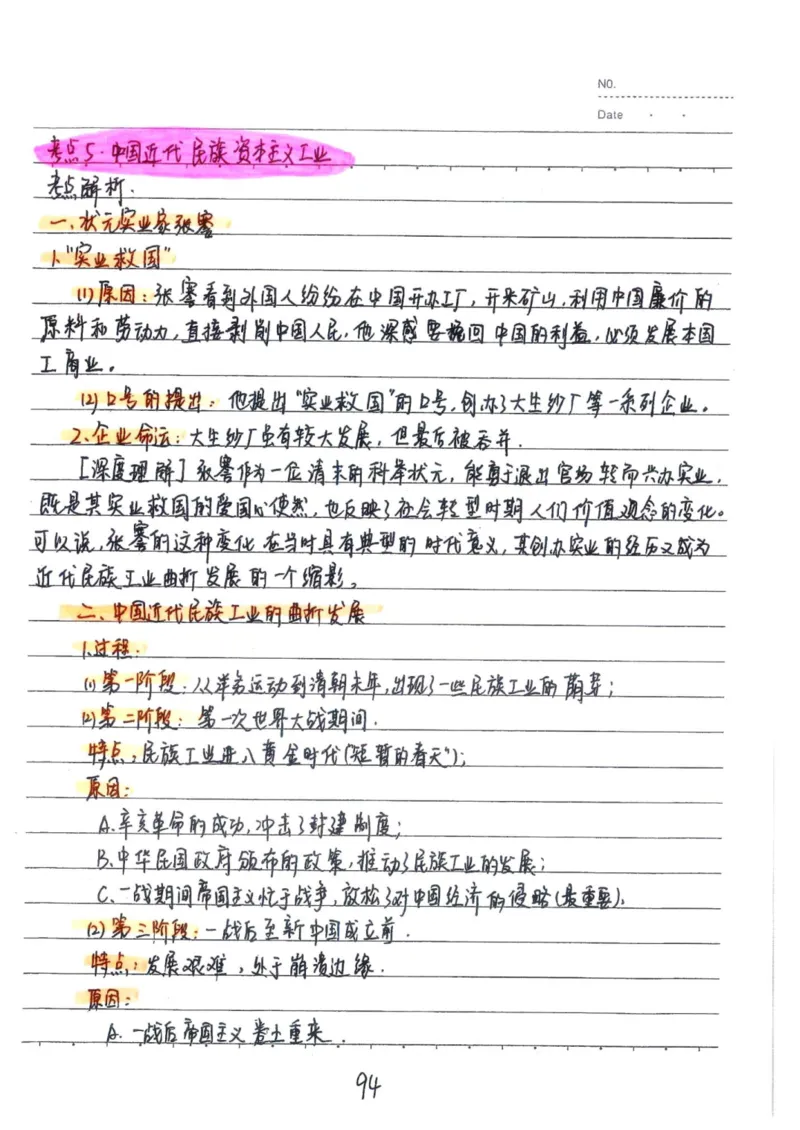 NO.
Date
考点5·中国近代民族资本主义工业
考点解析.
一、状元实业家张謇
1."实业救国"
(1)原因:张謇看到外国人纷纷在中国开办工厂,开采矿山,利用中国廉价的
原料和劳动力,直接剥削中国人民,他深感要挽回中国的利益,必须发展本国
工商业。
(2)口号的提出:他提出"实业救国"的口号,创办了大生纱厂等一系列企业。
2、企业命运:大生纱厂虽有较大发展,但最后被吞并.
[深度理解]张謇作为一位清末的科举状元,能勇于退出官场转而兴办实业,
既是其实业救国的爱国心使然,也反映了社会转型时期人们价值观念的变化。
可以说,张謇的这种变化在当时具有典型的时代意义,其创办实业的经历又成为
近代民族工业曲折发展的一个缩影。
二、中国近代民族工业的曲折发展
1.过程.
(1)第一阶段:从洋务运动到清朝末年,出现了一些民族工业的萌芽;
(2)第二阶段:第一次世界大战期间.
特点:民族工业进入黄金时代("短暂的春天");
原因:
A.辛亥革命的成功,冲击了封建制度;
B.中华民国政府颁布的政策,推动了民族工业的发展;
C.一战期间帝国主义忙于战争,放松了对中国经济的侵略(最重要).
(2)第三阶段:一战后至新中国成立前.
特点:发展艰难,处于崩溃边缘.
原因:
A.一战后帝国主义卷土重来.
94